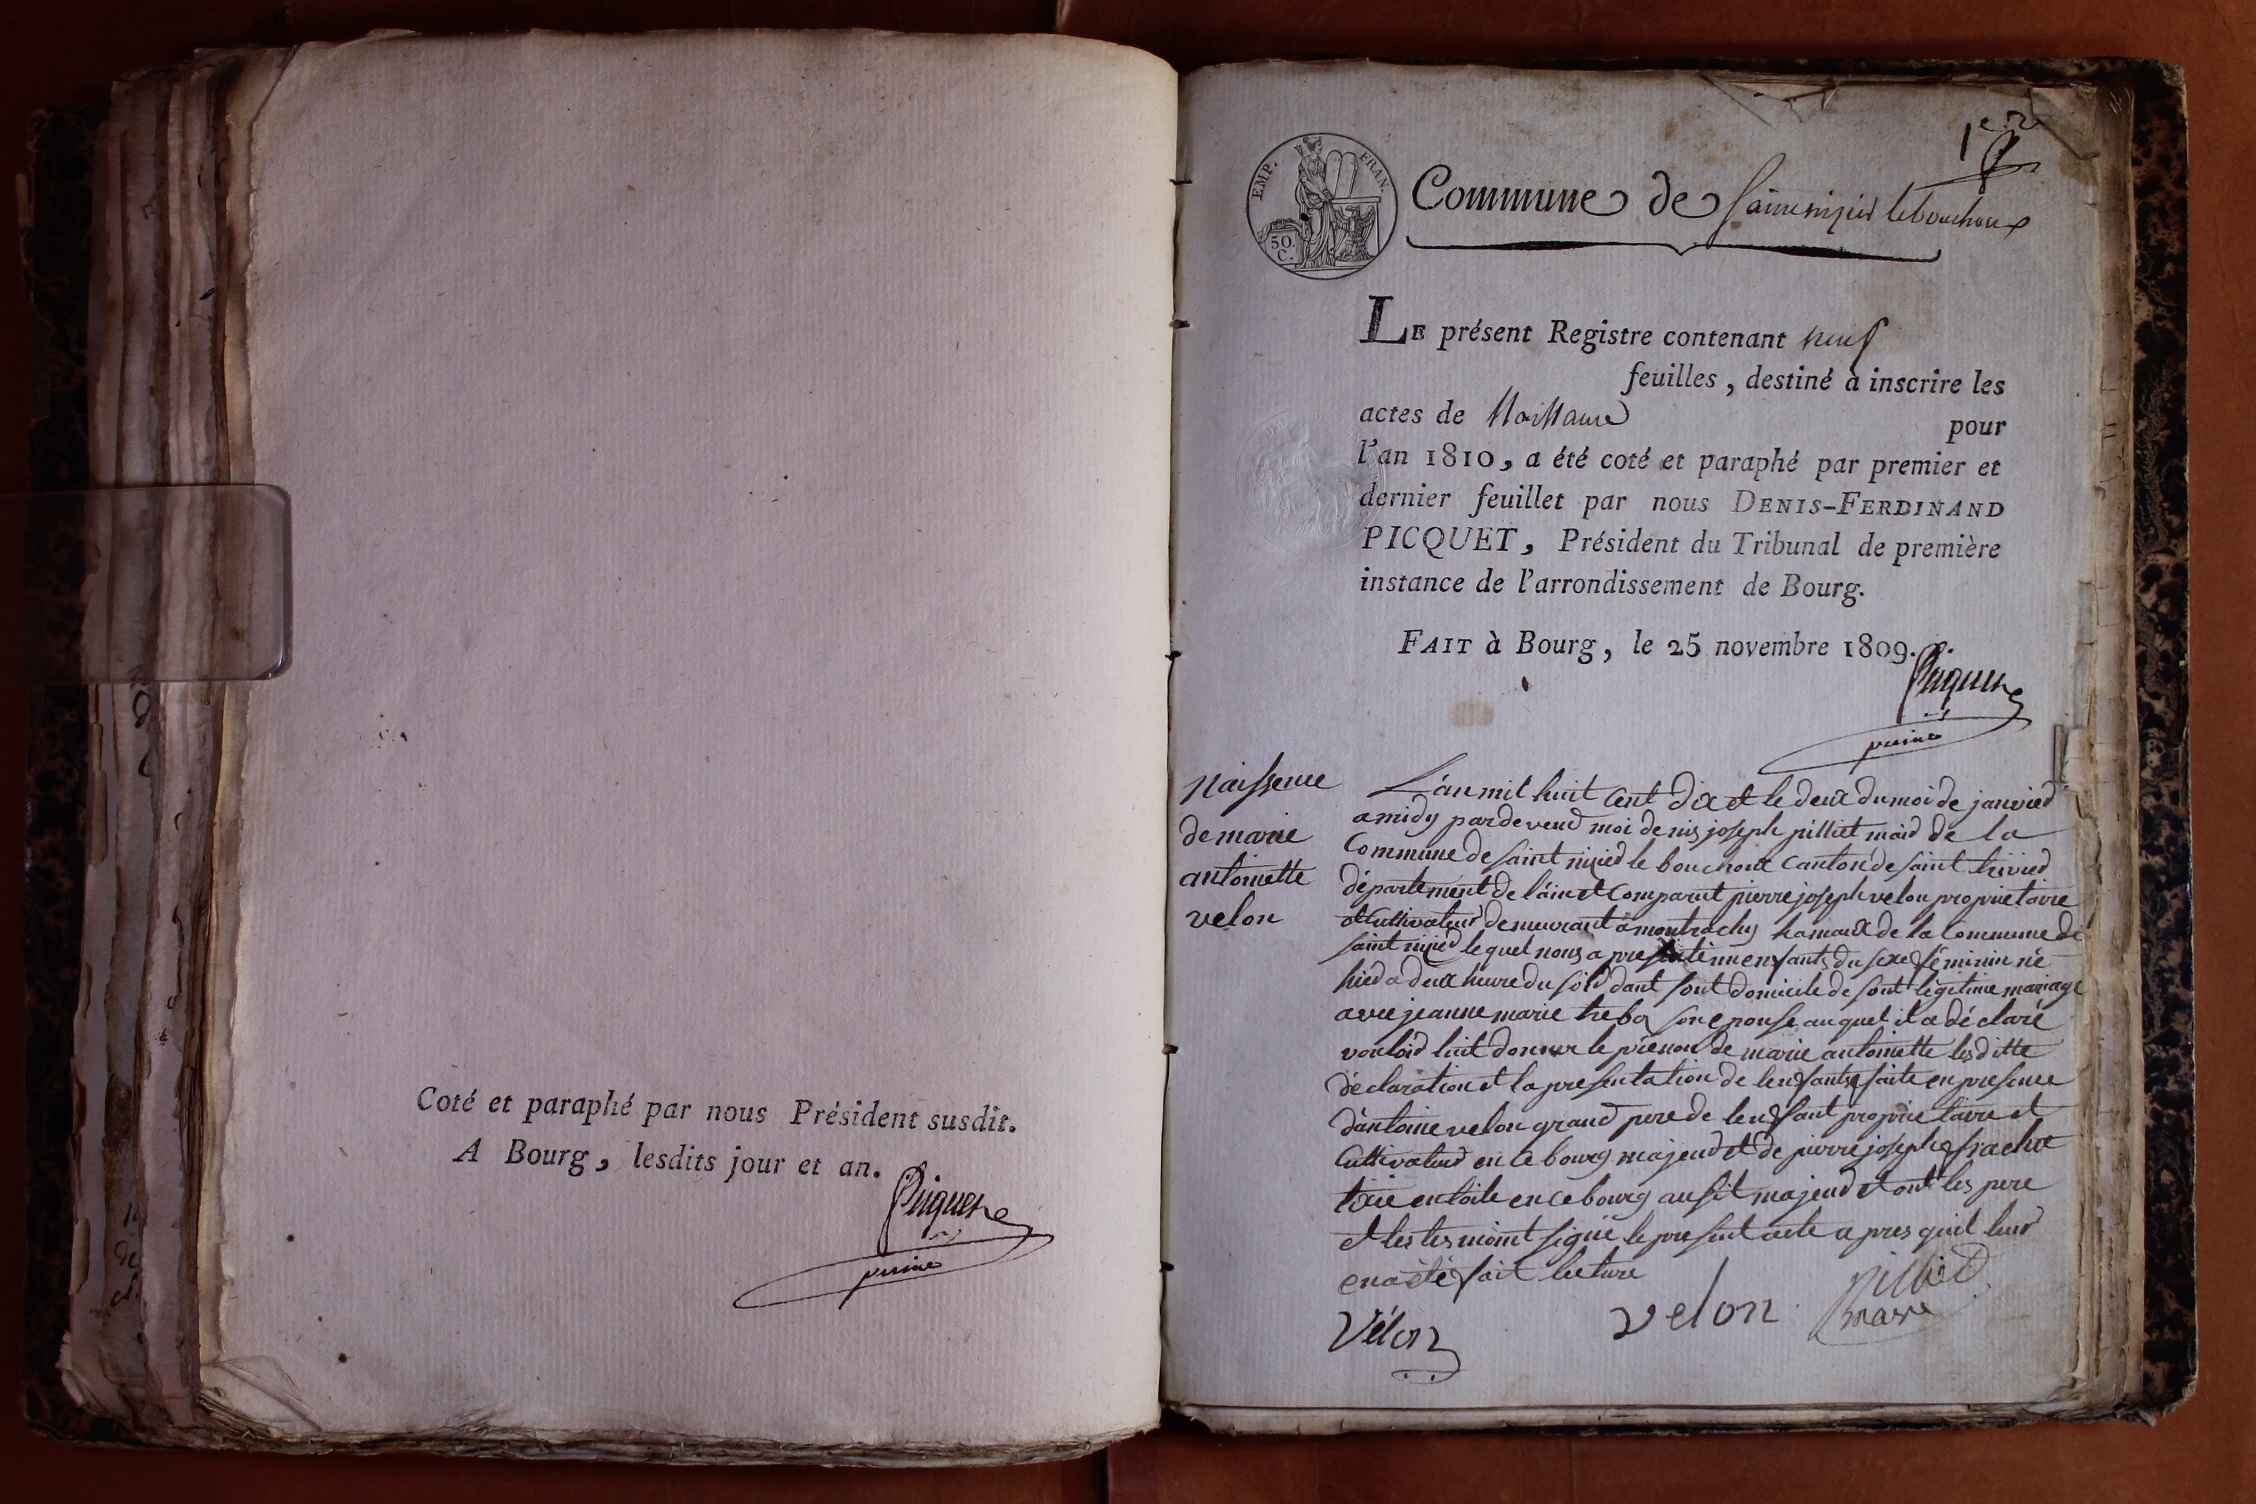 Coté et paraphé par nous Président susdit.
A Bourg, lesdits jour et an.
Picquet
1er
EMP. FRAN.
50.
C.
Commune de Saint nizier le bouchoux
LE présent Registre contenant neuf
feuilles, destiné à inscrire les
actes de Naissance pour
l'an 1810, a été coté et paraphé par premier et
dernier feuillet par nous DENIS-FERDINAND
PICQUET, Président du Tribunal de première
instance de l'arrondissement de Bourg.
FAIT à Bourg, le 25 novembre 1809.
Picquet
naissence
de marie
antoinette
velon
L'an mil huit cent dix et le deux du moi de janvier
a midy par devend moi denis joseph pilliet maid de la
Commune de saint nizied le bouchoux canton de saint trivied
département de l'ain et Comparut pierre joseph velon proprietaire
et Cultivateur demeurant a montrachy hamaux de la Commune de
saint nizied le quel nous a presenté un enfants du sexe féminin né
hied a deux heure du soid dant sont domicile de sont légitime mariage
avec jeanne marie trebo son epouse auquel il a déclaré
vouloid luit donner le prénon de marie antoinette les ditte
déclaration et la presentation de lenfants faite en presence
d'antoine velon grand pere de lenfant proprietaire et
Cultivateur en ce bourg majeud et de pierre joseph frachet
tixie en toile en ce bourg ausit majeud et ont les pere
et les tesmoint signé le present acte a pres quil leur
en a été fait lecture
Vélon velon pilliet
maire